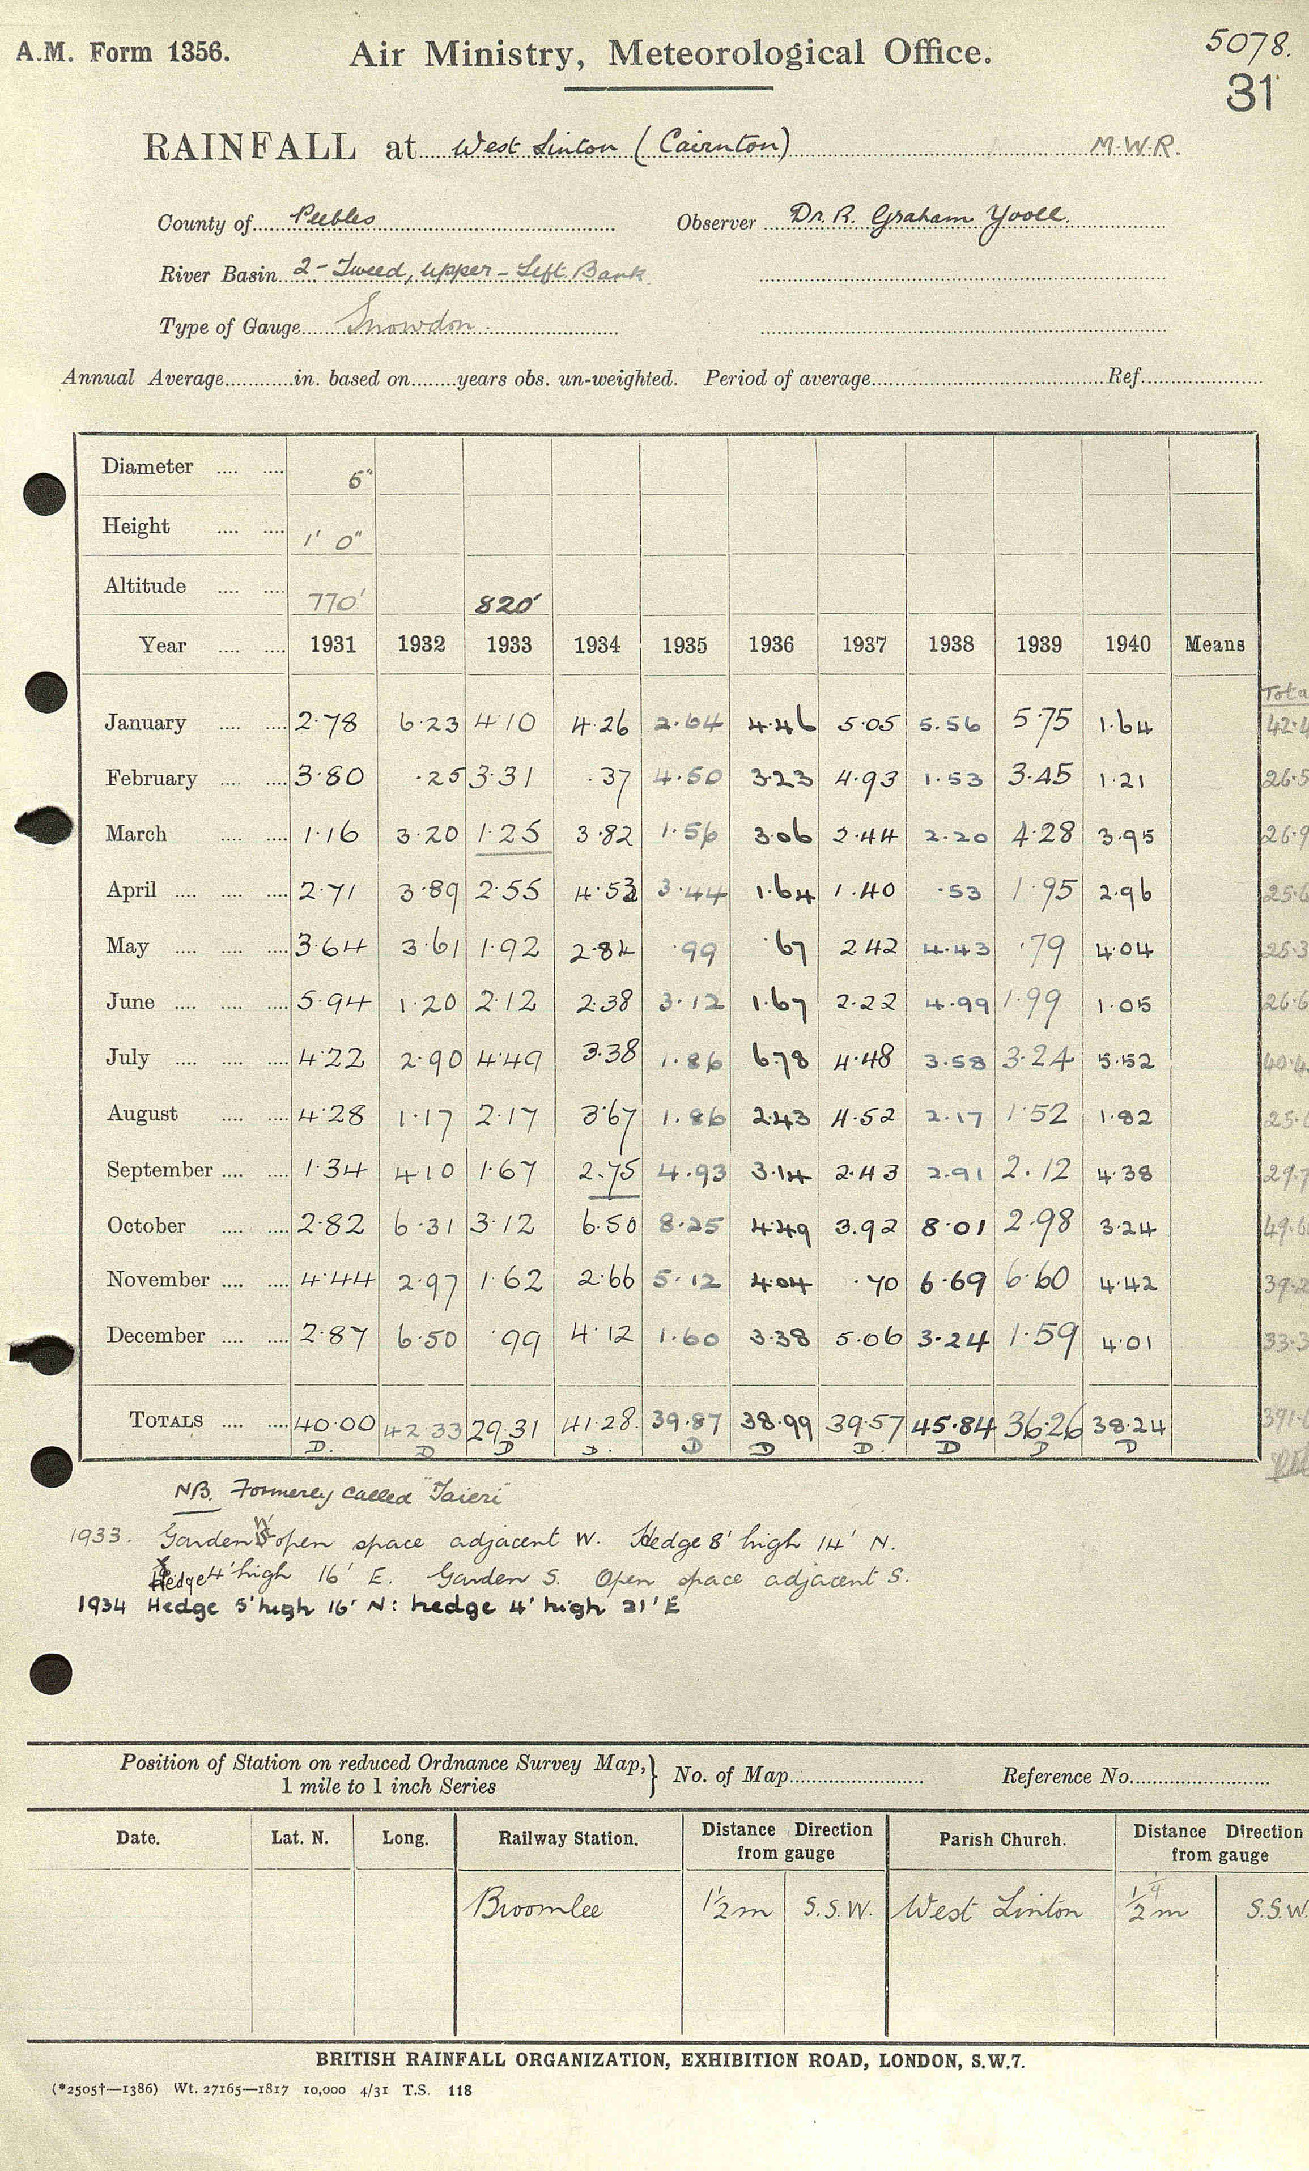 A.M. Form 1356. Air Ministry, Meteorological Office. 5078.
31
RAINFALL at West Linton (Cairnton) M.W.R.
County of Peebles Observer Dr. R. Graham Yooll.
River Basin 2 - Tweed, Upper - Left Bank
Type of Gauge Snowdon
Annual Average in. based on years obs. un-weighted. Period of average Ref.
Diameter 5"
Height 1' 0"
Altitude 770' 820'
Year 1931 1932 1933 1934 1935 1936 1937 1938 1939 1940 Means
Tota
January 2·78 6·23 4·10 4·26 2·64 4·46 5·05 5·56 5·75 1·64 42·4
February 3·80 ·25 3·31 ·37 4·50 3·23 4·93 1·53 3·45 1·21 26·5
March 1·16 3·20 1·25 3·82 1·56 3·06 2·44 2·20 4·28 3·95 26·9
April 2·71 3·89 2·55 4·53 3·44 1·64 1·40 ·53 1·95 2·96 25·6
May 3·64 3·61 1·92 2·84 ·99 ·67 2·42 4·43 ·79 4·04 25·3
June 5·94 1·20 2·12 2·38 3·12 1·67 2·22 4·99 1·99 1·05 26·6
July 4·22 2·90 4·49 3·38 1·86 6·78 4·48 3·58 3·24 5·52 40·4
August 4·28 1·17 2·17 3·67 1·86 2·43 4·52 2·17 1·52 1·82 25·
September 1·34 4·10 1·67 2·75 4·93 3·14 2·43 2·91 2·12 4·38 29·7
October 2·82 6·31 3·12 6·50 8·25 4·49 3·92 8·01 2·98 3·24 49·6
November 4·44 2·97 1·62 2·66 5·12 4·04 ·70 6·69 6·60 4·42 39·2
December 2·87 6·50 ·99 4·12 1·60 3·38 5·06 3·24 1·59 4·01 33·3
TOTALS 40·00 42·33 29·31 41·28 39·87 38·99 39·57 45·84 36·26 38·24 391·6
D. D D D. D D D. D D D
NB. Formerly called "Taieri"
1933. Garden W open space adjacent W. Hedge 8' high 14' N.
Hedge 4' high 16' E. Garden S. Open space adjacent S.
1934 Hedge 5' high 16' N: hedge 4' high 21' E
Position of Station on reduced Ordnance Survey Map,
1 mile to 1 inch Series } No. of Map Reference No.
Date. Lat. N. Long. Railway Station. Distance Direction from gauge Parish Church. Distance Direction from gauge
Broomlee 1½ m S.S.W. West Linton ½ m S.S.W.
BRITISH RAINFALL ORGANIZATION, EXHIBITION ROAD, LONDON, S.W.7.
(*2505†—1386) Wt. 27165—1817 10,000 4/31 T.S. 118